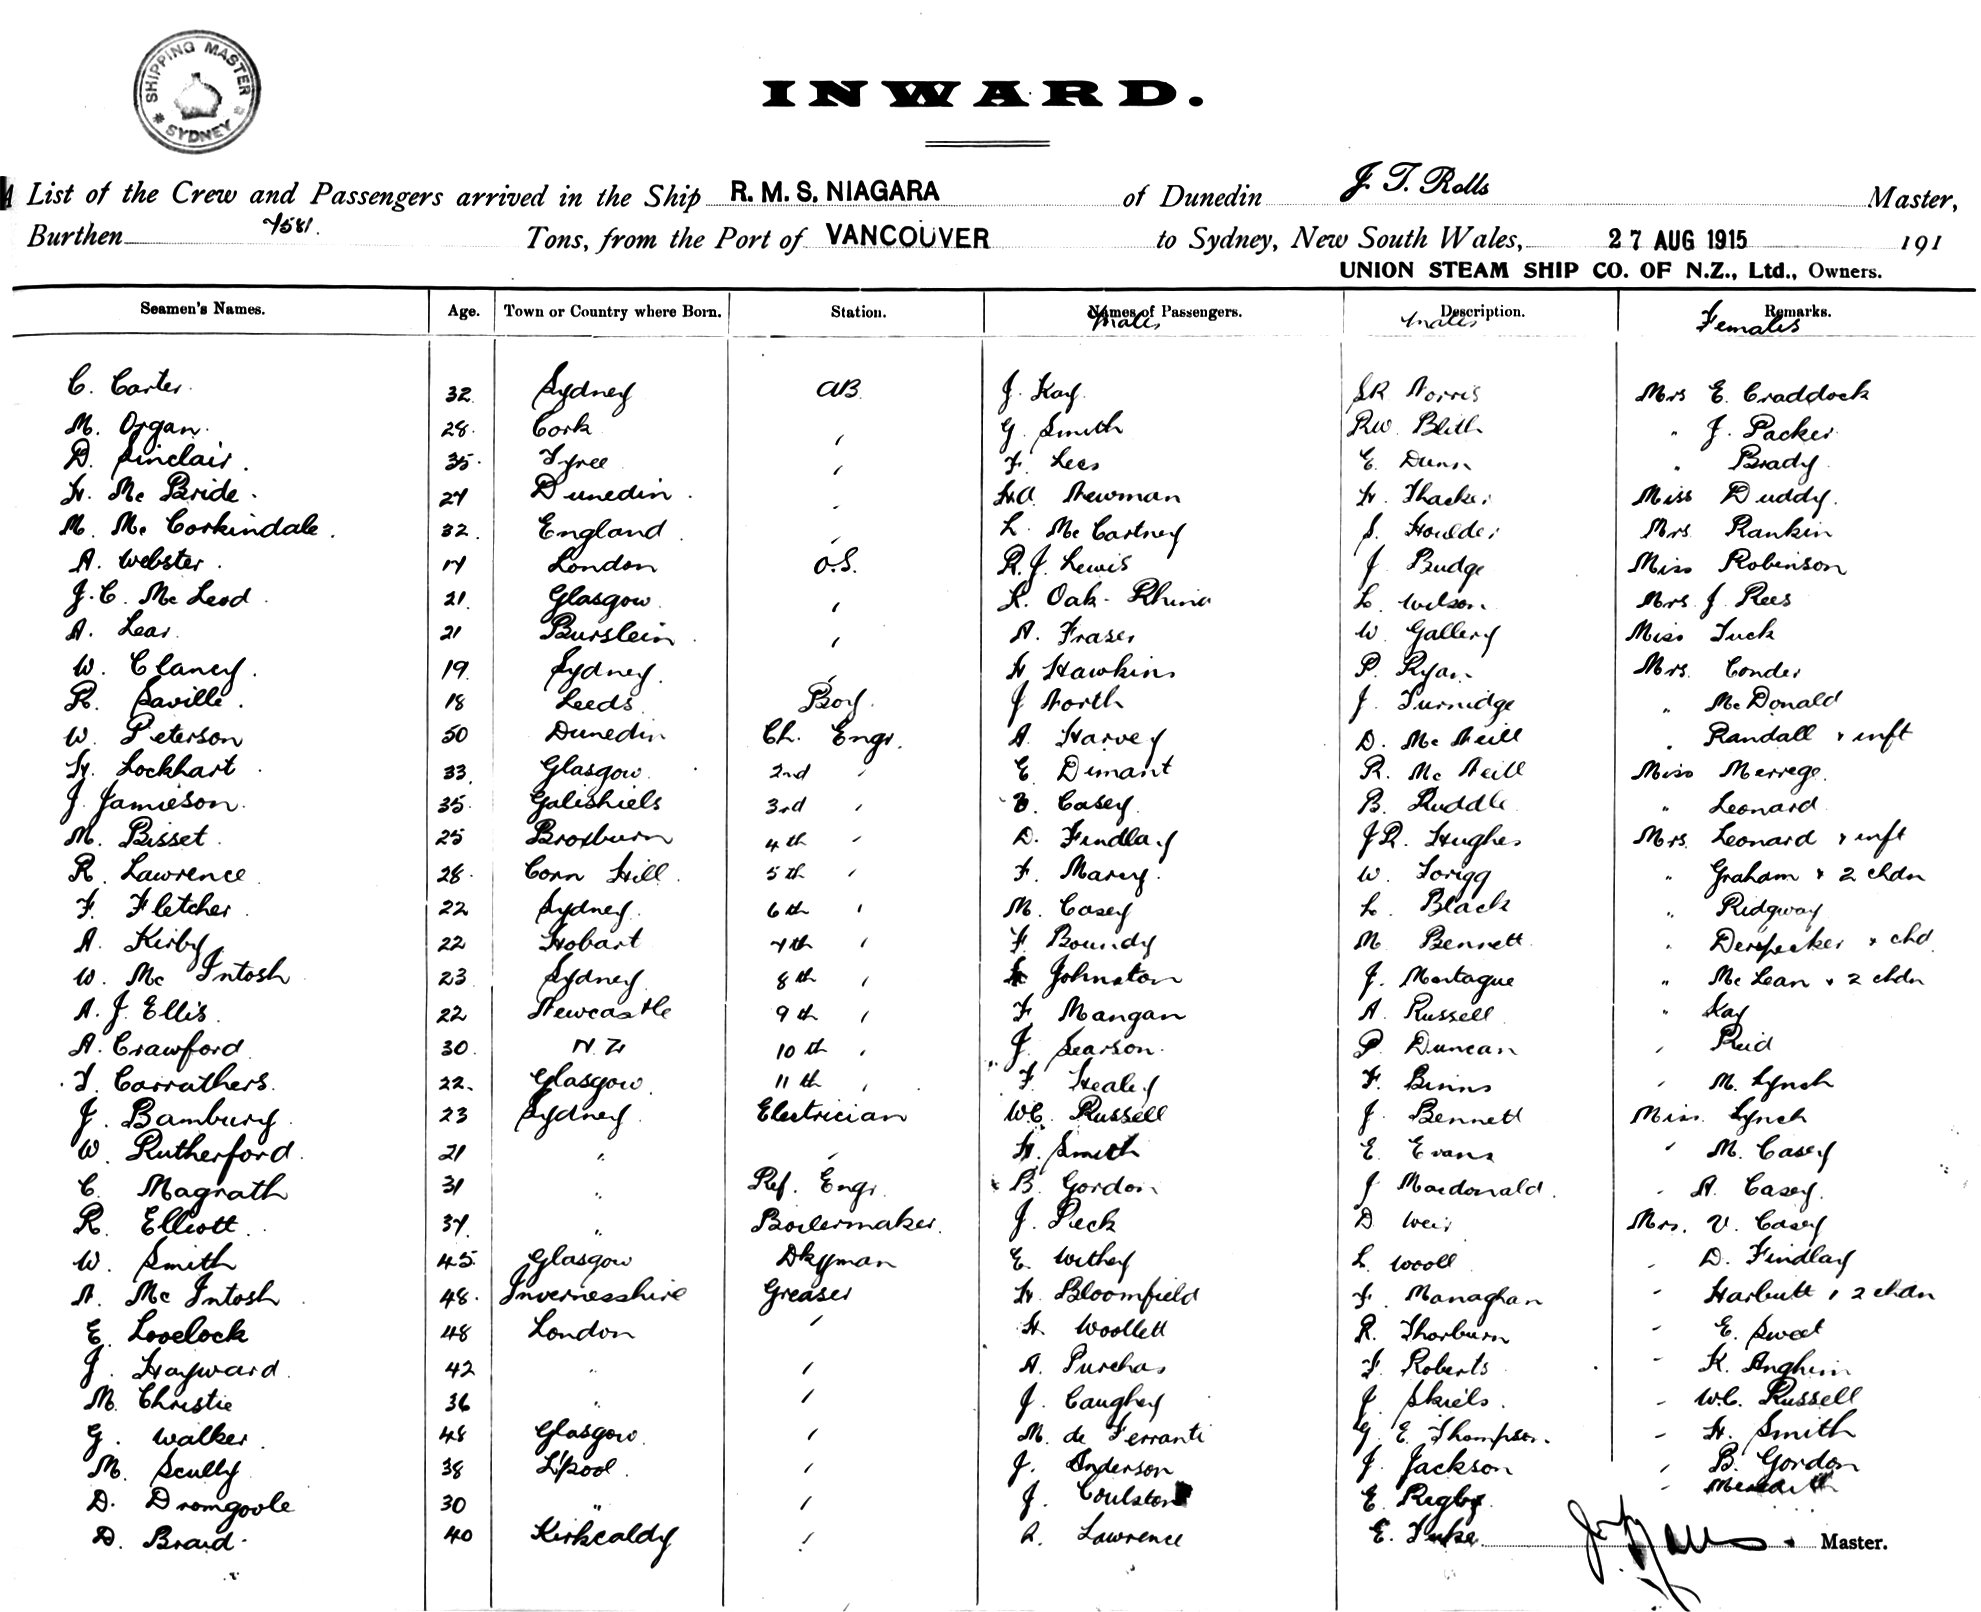 SHIPPING MASTER SYDNEY
INWARD.
A List of the Crew and Passengers arrived in the Ship R. M. S. NIAGARA of Dunedin J. T. Rolls Master,
Burthen 7581. Tons, from the Port of VANCOUVER to Sydney, New South Wales, 27 AUG 1915 191
UNION STEAM SHIP CO. OF N.Z., Ltd., Owners.
Seamen's Names. Age. Town or Country where Born. Station. Names of Passengers. Description. Remarks.
Males Males Females
C. Carter. 32 Sydney AB J. Kay. J.R. Norris Mrs E. Craddock
M. Organ. 28. Cork " G. Smith R.W. Blith " J. Packer
D. Sinclair. 35. Tyree " F. Lees E. Dunn " Brady.
H. McBride. 27 Dunedin. " H.A. Newman H. Thacker Miss Duddy.
M. McCorkindale. 32. England. " L. McCartney S. Houlder Mrs. Rankin
A. Webster. 17 London O.S. R.J. Lewis J Budge Miss Robinson
J.C. McLeod. 21. Glasgow. " K. Oak-Rhind L. Wilson Mrs. J. Rees
A. Lear. 21 Burslein. " A. Fraser W. Gallery Miss Tuck
W. Clancy. 19. Sydney. " H Hawkins P. Ryan Mrs. Conder
R. Saville. 18 Leeds. Boy. J North J. Turnidge " McDonald
W. Peterson 50 Dunedin Ch. Engr. A. Harvey D. McNeill " Randall & inft
H. Lockhart. 33. Glasgow. 2nd " E. Dimant R. McNeill Miss Merrege.
J. Jamieson. 35. Galishiels 3rd " Casey. B. Ruddle " Leonard
M. Bisset. 25 Broxburn 4th " D. Findlay J.R. Hughes Mrs. Leonard & inft
R. Lawrence. 28. Corn Hill. 5th " F. Marcy. W. Torigg " Graham & 2 chdn
F. Fletcher. 22 Sydney. 6th " M. Casey L. Black " Ridgway
A. Kirby. 22 Hobart 7th " F. Boundy M Bennett " & chd.
W. McIntosh 23 Sydney. 8th " Johnston J. Montague " McLean & 2 chdn
A.J. Ellis. 22 Newcastle 9th " F Mangan A. Russell " Kay
A. Crawford. 30. N.Z. 10th " J. Searson. P. Duncan " Reid
T. Carrathers. 22. Glasgow. 11th " F. Healey F. Binns " M. Lynch
J. Bambury. 23 Sydney. Electrician W.C. Russell J. Bennett Miss. Lynch
W. Rutherford. 21 " " H. Smith E Evans " M. Casey
C. Magrath 31 " Ref. Engr. B. Gordon J Macdonald. " A. Casey.
R. Elliott. 37. " Boilermaker. J. Peck D Weir Mrs. V. Casey
W. Smith 45. Glasgow Dkyman E. Withey L. Wooll " D. Findlay
A. McIntosh. 48. Invernesshire Greaser H. Bloomfield F. Managhan " Harbutt & 2 chdn
E. Lovelock 48 London " H. Woollett R. Thorburn " E. Sweet
J. Hayward. 42 " " A. Purchas F. Roberts. " K. Anghim
M. Christie 36 " " J. Caughey J Skiels. " W.C. Russell
G. Walker. 48 Glasgow. " M. de Ferranti G. E. Thompson. " H. Smith
M. Scully 38 L'pool. " J. Anderson J. Jackson " B. Gordon
D. Dromgoole 30 " " J. Coulston E. Rigby. " Meredith
D. Braid. 40 Kirkcaldy " A. Lawrence E. Tuke J. T. Rolls Master.